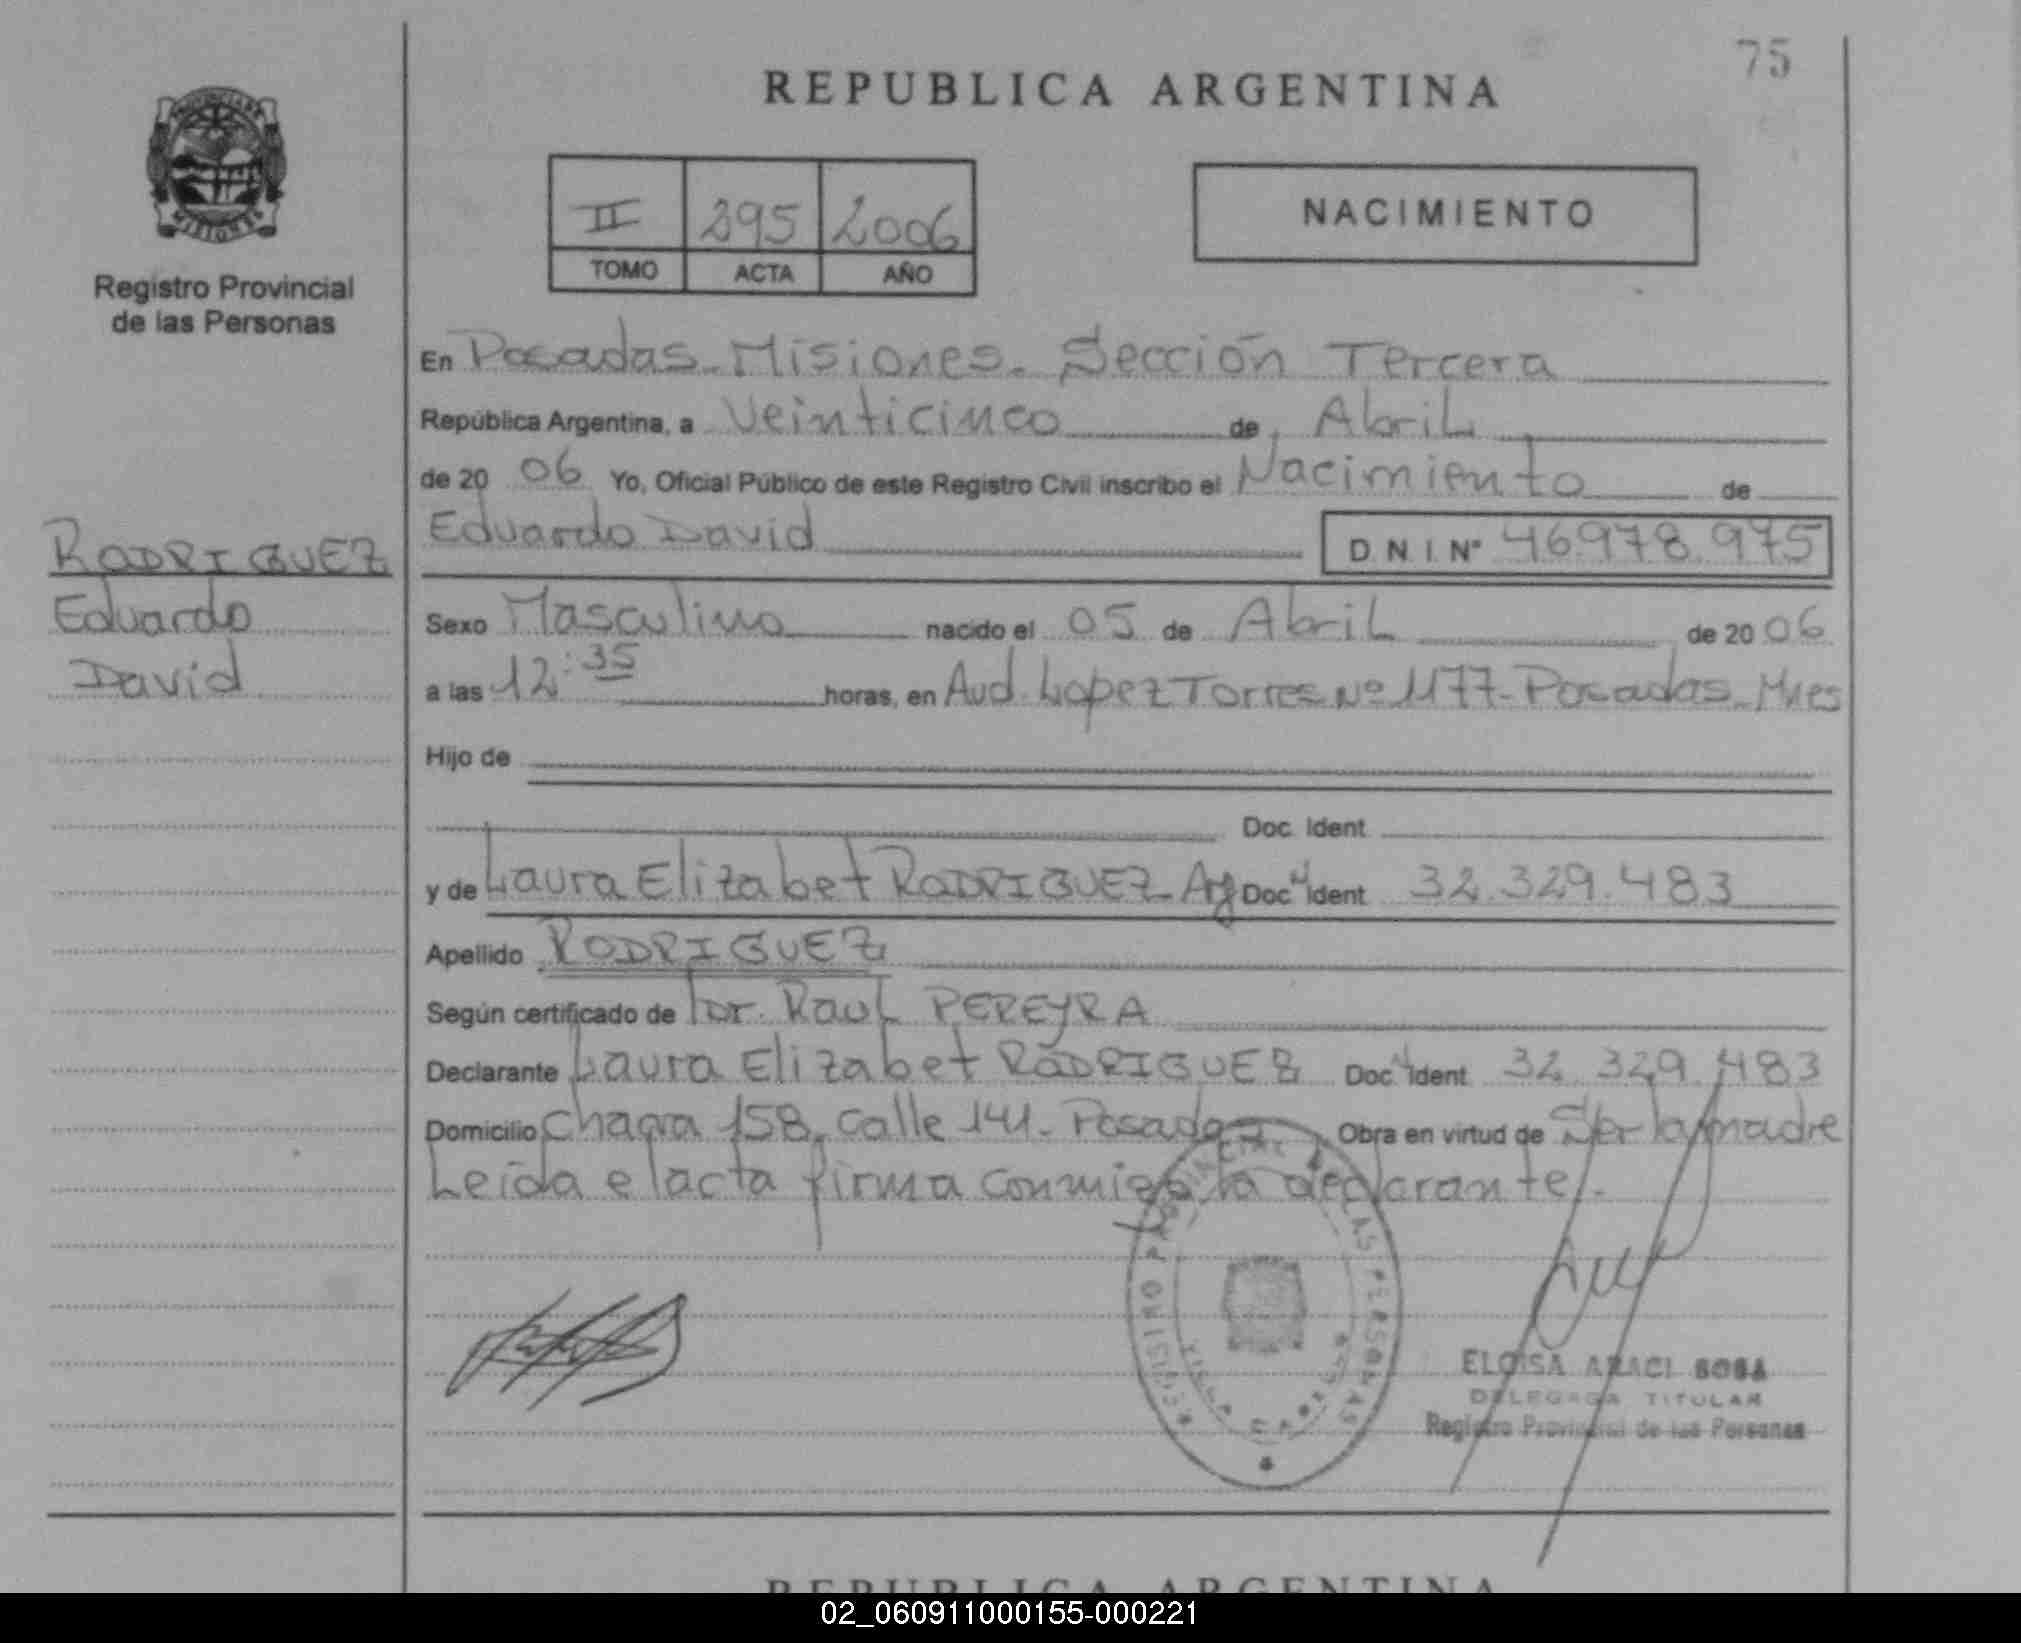 75
REPUBLICA ARGENTINA
PROVINCIA DE
MISIONES
Registro Provincial
de las Personas
II 295 2006
TOMO ACTA AÑO
NACIMIENTO
En Posadas-Misiones. Sección Tercera
República Argentina, a Veinticinco de Abril
de 20 06 Yo, Oficial Público de este Registro Civil inscribo el Nacimiento de
Eduardo David D.N.I. Nº 46.978.975
RODRIGUEZ
Eduardo
David
Sexo Masculino nacido el 05 de Abril de 20 06
a las 12:35 horas, en Avd. Lopez Torres Nº 1177-Posadas-Mnes
Hijo de
Doc. Ident
y de Laura Elizabet RODRIGUEZ-Arg Doc. Ident 32.329.483
Apellido RODRIGUEZ
Según certificado de Dr. Raul PEREYRA
Declarante Laura Elizabet RODRIGUEZ Doc. Ident 32.329.483
Domicilio Chacra 158, calle 141- Posadas Obra en virtud de Ser la madre
Leída el acta firma conmigo la declarante.
PROVINCIAL DE LAS PERSONAS
ELOISA ARACI SOSA
DELEGADA TITULAR
Registro Provincial de las Personas
REPUBLICA ARGENTINA
02_060911000155-000221